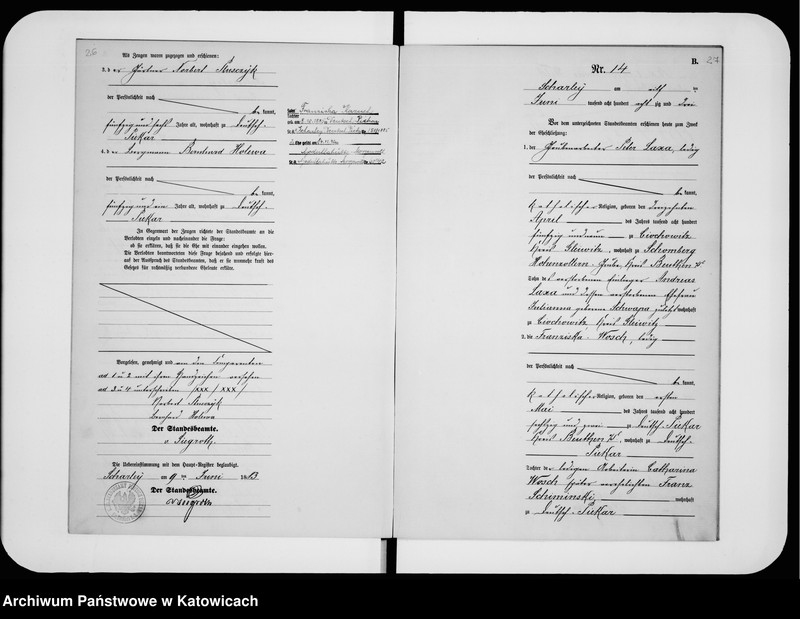 26
Als Zeugen waren zugezogen und erschienen:
3. der Gärtner Norbert
der Persönlichkeit nach
bekannt,
fünfzig und Jahre alt, wohnhaft zu Deutsch-
Piekar
4. der Bergmann Bernhard Holewa
der Persönlichkeit nach
bekannt,
fünfzig und ein Jahre alt, wohnhaft zu Deutsch-
Piekar
In Gegenwart der Zeugen richtete der Standesbeamte an die
Verlobten einzeln und nacheinander die Frage:
ob sie erklären, daß sie die Ehe mit einander eingehen wollen.
Die Verlobten beantworteten diese Frage bejahend und erfolgte hier-
auf der Ausspruch des Standesbeamten, daß er sie nunmehr kraft des
Gesetzes für rechtmäßig verbundene Eheleute erkläre.
Vorgelesen, genehmigt und von den Komparenten
ad 1 u 2 mit ihrem Handzeichen versehen
ad 3 u 4 unterschrieben /xxx/ xxx/
Norbert
Bernhard Holewa
Der Standesbeamte.
Die Uebereinstimmung mit dem Haupt-Register beglaubigt.
Scharley am 9 ten Juni 1883.
Der Standesbeamte.
Franziska
B. 27
Nr. 14
Scharley am
Juni tausend acht hundert achtzig und drei
Vor dem unterzeichneten Standesbeamten erschienen heute zum Zweck
der Eheschließung:
1. der Grubenarbeiter Peter Laxa, ledig
der Persönlichkeit nach
bekannt,
katholischer Religion, geboren den
April des Jahres tausend acht hundert
fünfzig und neun zu Ciochowitz
Kreis Gleiwitz, wohnhaft zu Schomberg
Hohenzollern-Grube, Kreis Beuthen
Sohn des verstorbenen Einlieger Andreas
Laxa und dessen verstorbenen Ehefrau
Julianna geborene Schwapa zuletzt wohnhaft
zu Ciochowitz Kreis Gleiwitz
2. die Franziska Wosch, ledig
der Persönlichkeit nach
bekannt,
katholischer Religion, geboren den ersten
Mai des Jahres tausend acht hundert
sechzig und zwei zu Deutsch-Piekar
Kreis Beuthen, wohnhaft zu Deutsch-
Piekar
Tochter der ledigen Arbeiterin Catharina
Wosch später verehelichten Franz
Schiminski, wohnhaft
zu Deutsch-Piekar
Archiwum Państwowe w Katowicach